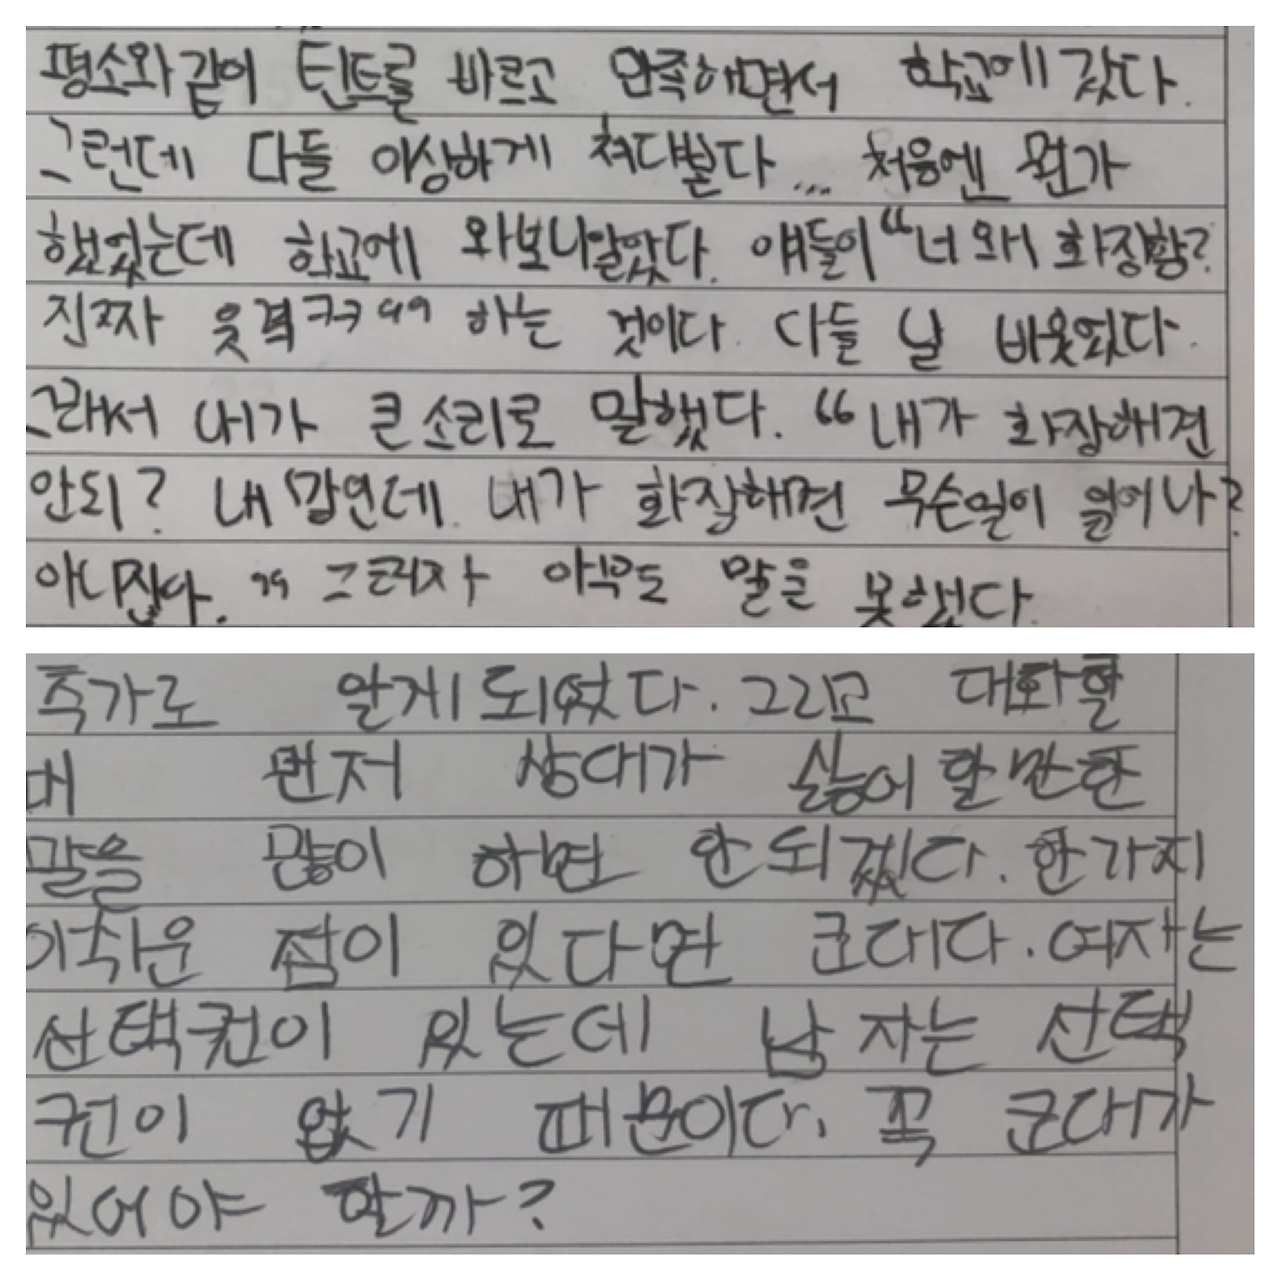 평소와 같이 틴트를 바르고 만족해면서 학교에 갔다.
그런데 다들 이상하게 쳐다봤다... 처음엔 뭔가
했었는데 학교에 와보니 알았다. 얘들이 “너 왜 화장함?
진짜 웃겨ㅋㅋ” 하는 것이다. 다들 날 비웃었다.
그래서 내가 큰 소리로 말했다. “내가 화장해면
안되? 내 맘인데. 내가 화장해면 무슨일이 일어나?
아니잖아.” 그러자 아무도 말을 못했다.
추가로 알게 되었다. 그리고 대화할
때 먼저 상대가 싫어 할 만한
말을 많이 하면 안 되겠다. 한가지
아쉬운 점이 있다면 군대다. 여자는
선택권이 있는데 남자는 선택
권이 없기 때문이다. 꼭 군대가
있어야 할까?